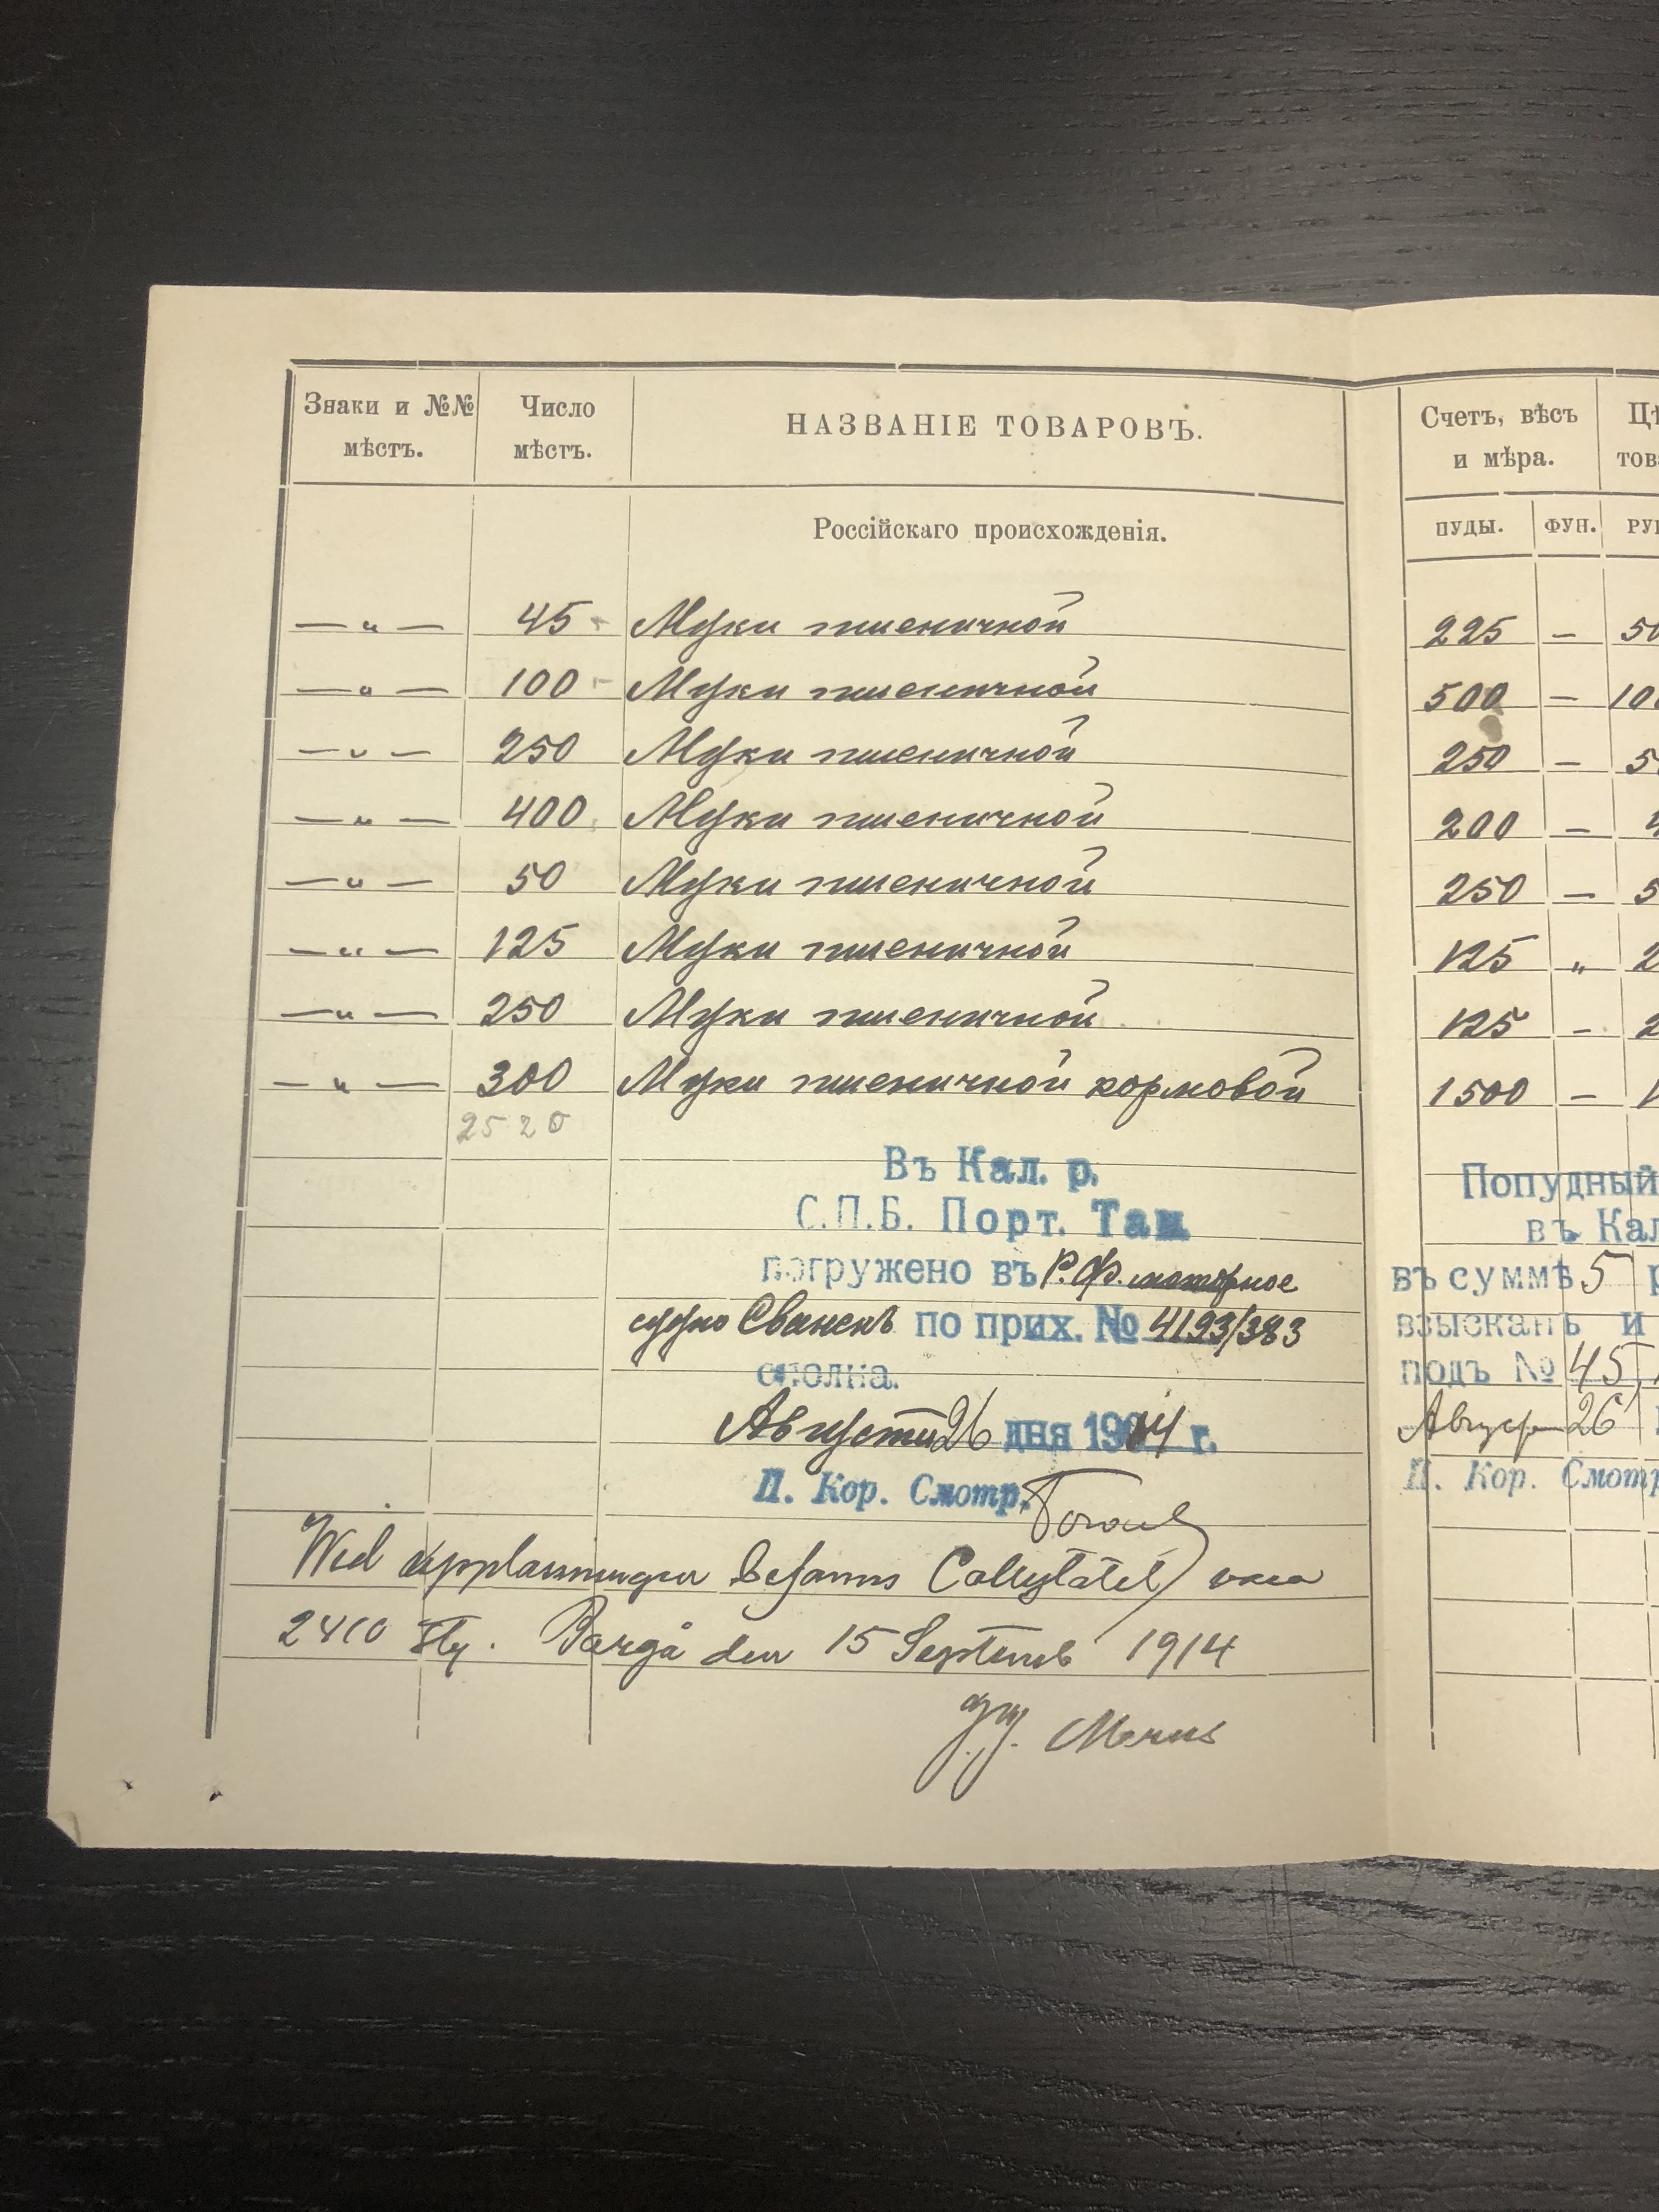 Знаки и №№ мѣстъ.
Число мѣстъ.
НАЗВАНІЕ ТОВАРОВЪ.
Счетъ, вѣсъ и мѣра.
Россійскаго происхожденія.
ПУДЫ. ФУН.
—„— 45 - Муки пшеничной 225 —
—„— 100 - Муки пшеничной 500 —
—„— 250 Муки пшеничной 250 —
—„— 400 Муки пшеничной 200 —
—„— 50 Муки пшеничной 250 —
—„— 125 Муки пшеничной 125 „
—„— 250 Муки пшеничной 125 —
—„— 300 Муки пшеничной кормовой 1500 —
2520
Въ Кал. р.
С.П.Б. Порт. Там
погружено въ Р. Ф. моторное
судно Сваненъ по прих. № 4193/383
сполна.
Августа 26 дня 1914 г.
П. Кор. Смотр.
Попудный
въ Кал
въ суммѣ 5 р
взысканъ и
подъ № 45
Август 26
П. Кор. Смотр
Wid upplassningen befanns vara
2410 Borgå den 15 Septemb 1914